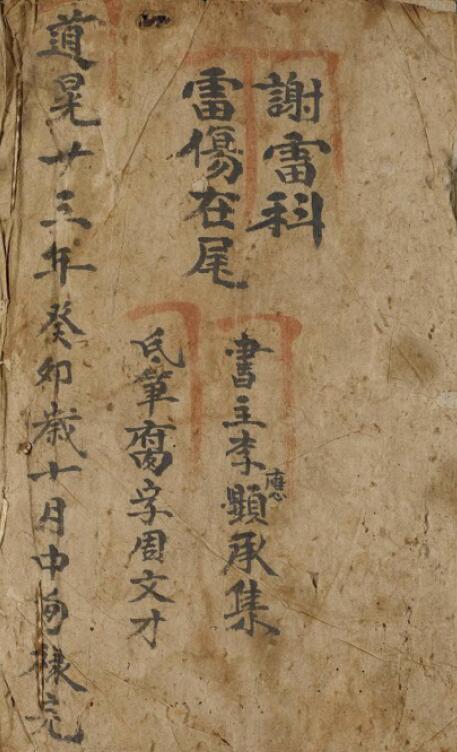 謝雷科
雷傷在尾
書主李顯應承集
氏筆腐字周文才
道晃廿三年癸卯歲十月中旬裱完